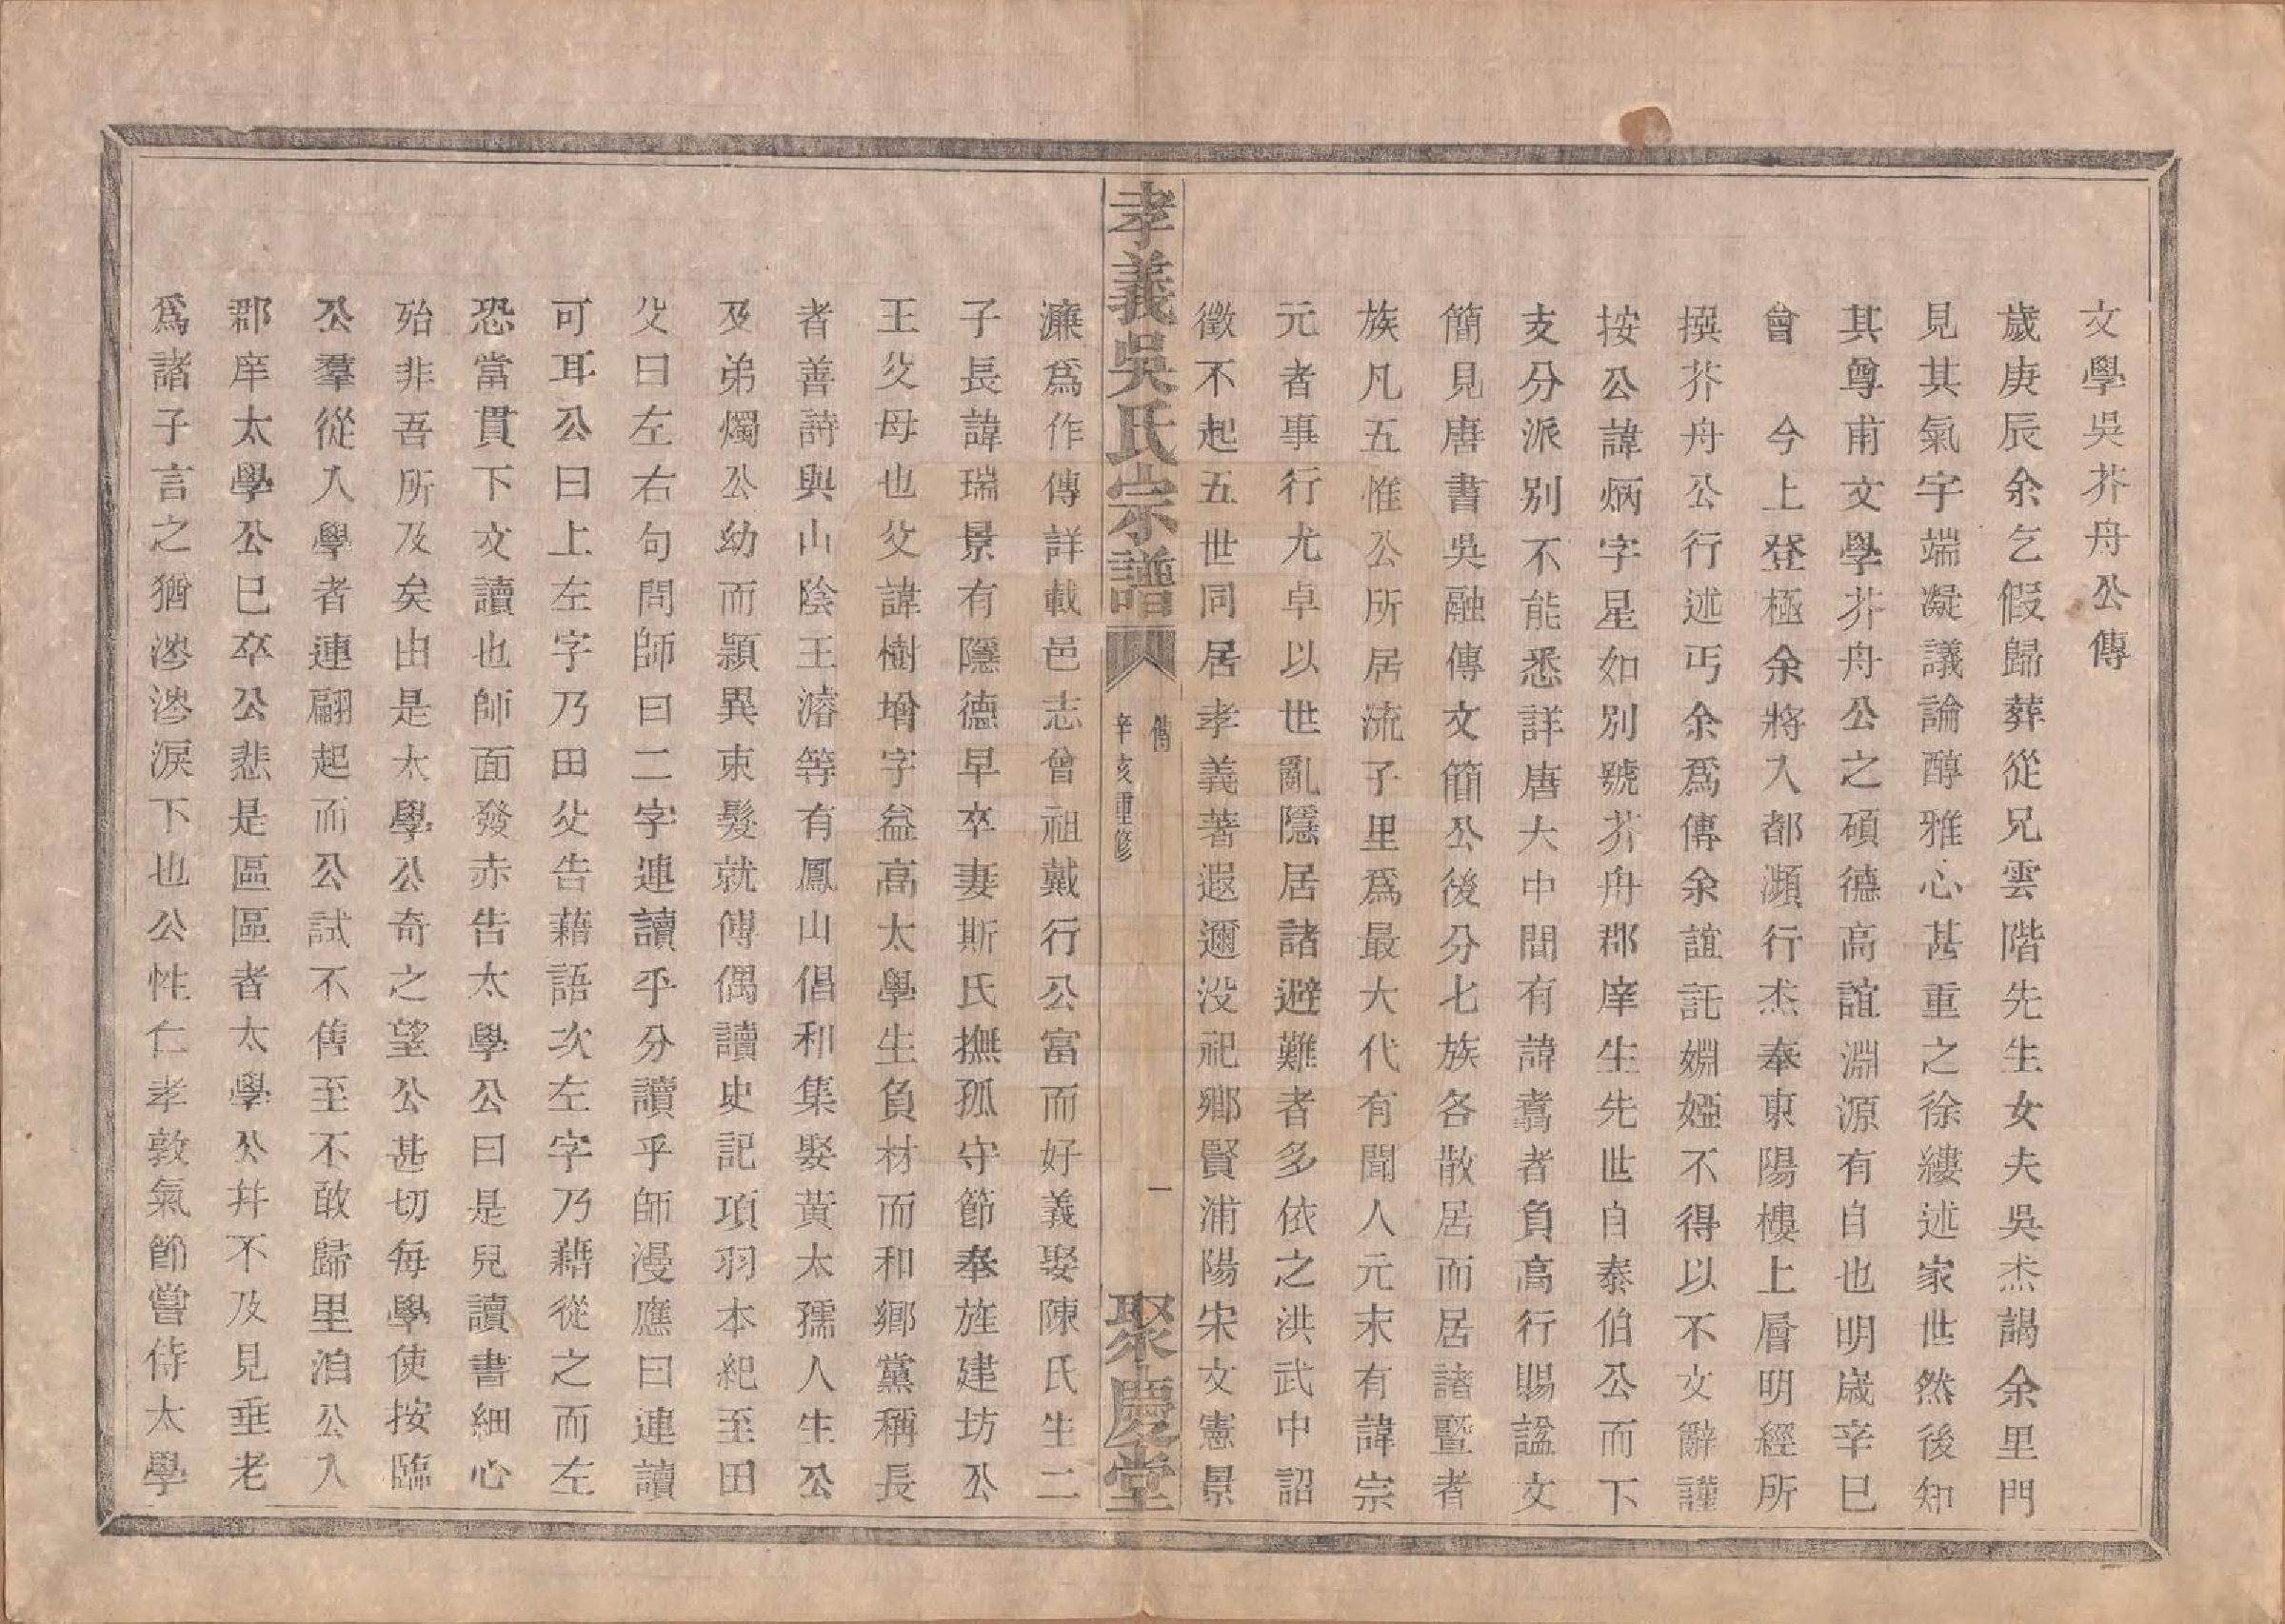 文學吳芥舟公傳
歲庚辰余乞假歸葬從兄雲階先生女夫吳杰謁余里門
見其氣宇端凝議論醇雅心甚重之徐縷述家世然後知
其尊甫文學芥舟公之碩德高誼淵源有自也明歲辛巳
會 今上登極余將入都瀕行杰奉東陽樓上層明經所
撰芥舟公行述丐余爲傳余誼託婣婭不得以不文辭謹
按公諱炳字星如別號芥舟郡庠生先世自泰伯公而下
支分派別不能悉詳唐大中間有諱翥者負高行賜謚文
簡見唐書吳融傳文簡公後分七族各散居而居諸暨者
族凡五惟公所居流子里爲最大代有聞人元末有諱宗
元者事行尤卓以世亂隱居諸避難者多依之洪武中詔
徵不起五世同居孝義著遐邇没祀鄉賢浦陽宋文憲景
孝義吳氏宗譜
傳
辛亥重修
一
聚慶堂
濂爲作傳詳載邑志曾祖戴行公富而好義娶陳氏生二
子長諱瑞景有隱德早卒妻斯氏撫孤守節奉旌建坊公
王父母也父諱樹增字益高太學生負材而和鄉黨稱長
者善詩與山陰王濬等有鳳山倡和集娶黃太孺人生公
及弟燭公幼而穎異束髮就傅偶讀史記項羽本紀至田
父曰左右句問師曰二字連讀乎分讀乎師漫應曰連讀
可耳公曰上左字乃田父告藉語次左字乃藉從之而左
恐當貫下文讀也師面發赤告太學公曰是兒讀書細心
殆非吾所及矣由是太學公奇之望公甚切每學使按臨
公羣從入學者連翩起而公試不售至不敢歸里洎公入
郡庠太學公已卒公悲是區區者太學公并不及見垂老
爲諸子言之猶滲滲淚下也公性仁孝敦氣節嘗侍太學